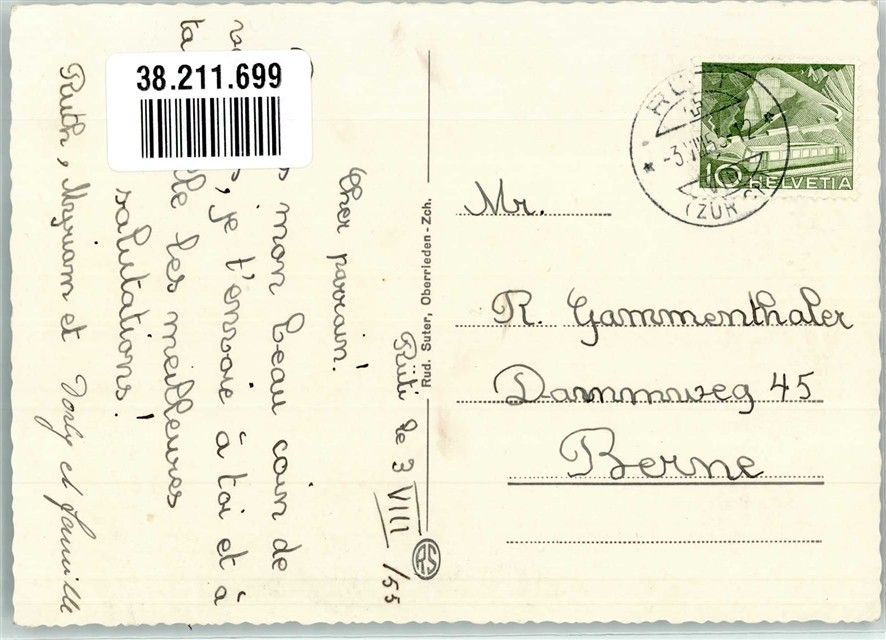 38.211.699
Rüti le 3 VIII /55
Cher parrain!
mon beau coin de
je t'envoie à toi et à
ta
les meilleures
salutations!
Ruth, Myriam et Dorly et famille
Rud. Suter, Oberrieden-Zch.
RS
Mr.
R. Gammenthaler
Dammweg 45
Berne
RÜTI
-3.VIII.55-12
(ZÜRCH)
10 HELVETIA